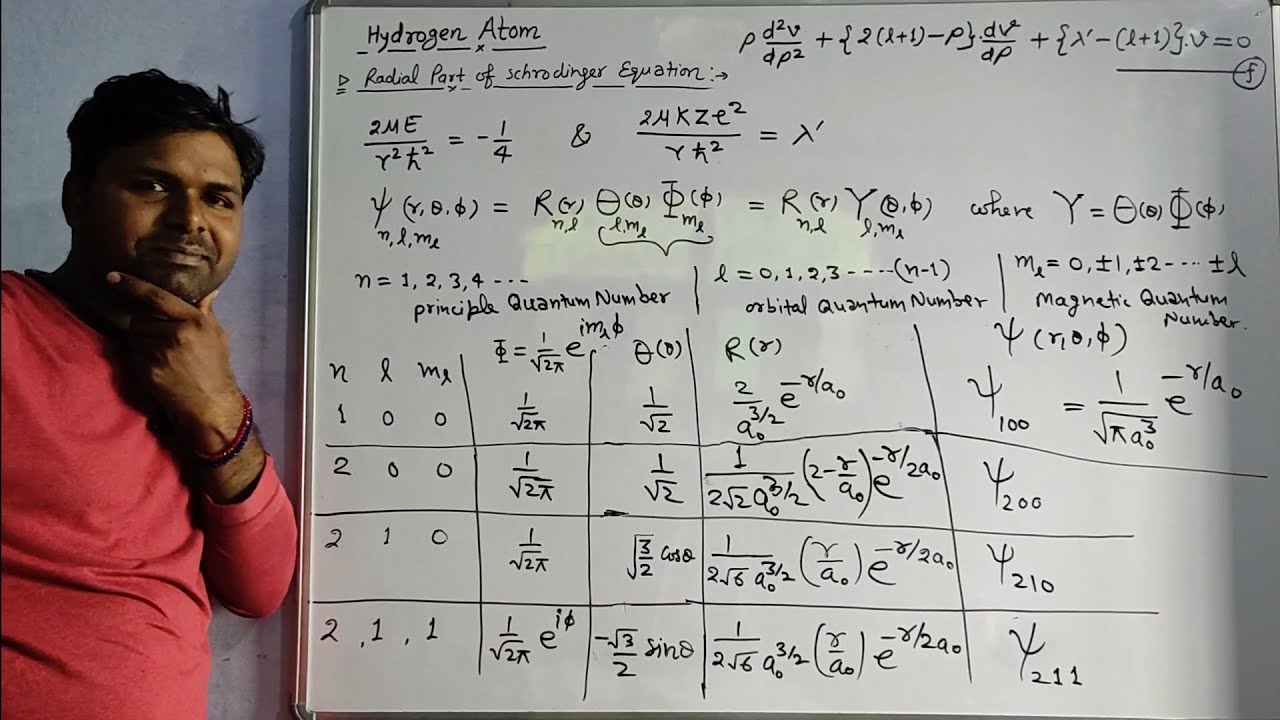 Hydrogen Atom
ρ d²v/dρ² + {2(l+1)-ρ}.dv/dρ + {λ'-(l+1)}.v=0
(f)
▷ Radial Part of schrodinger Equation:→
2μE/r²ħ² = -1/4 & 2μKZe²/rħ² = λ'
ψ(r,θ,ϕ) = R(r) Θ(θ) Φ(ϕ) = R(r) Y(θ,ϕ) where Y = Θ(θ) Φ(ϕ)
n,l,mₗ n,l l,mₗ mₗ n,l l,mₗ
n = 1, 2, 3, 4 ---- l = 0, 1, 2, 3 -----(n-1) mₗ = 0, ±1, ±2 ---- ±l
principle Quantum Number orbital Quantum Number Magnetic Quantum
Number.
n l mₗ Φ = 1/√2π e^imₗϕ Θ(θ) R(r) ψ(r,θ,ϕ)
1 0 0 1/√2π 1/√2 2/a₀^3/2 e^-r/a₀ ψ₁₀₀ = 1/√πa₀³ e^-r/a₀
2 0 0 1/√2π 1/√2 1/2√2 a₀^3/2 (2-r/a₀) e^-r/2a₀ ψ₂₀₀
2 1 0 1/√2π √3/2 cosθ 1/2√6 a₀^3/2 (r/a₀) e^-r/2a₀ ψ₂₁₀
2 , 1 , 1 1/√2π e^iϕ -√3/2 sinθ 1/2√6 a₀^3/2 (r/a₀) e^-r/2a₀ ψ₂₁₁